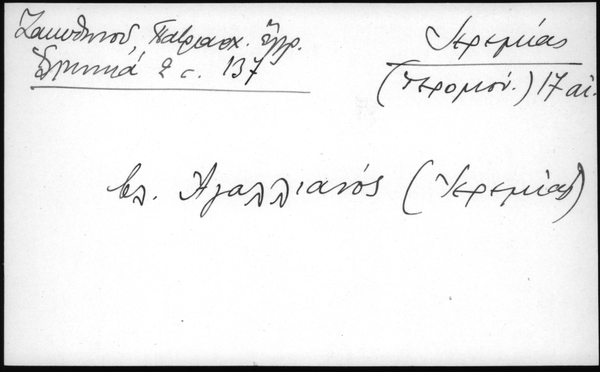 Ζακυθηνοῦ, Πατριαρχ. ἔγγρ.
Ἑλληνικά 2 σ. 137
Ἱερεμίας
(ἱερομόν.) 17 αἰ.
βλ. Ἀγαλλιανός (Ἱερεμίας)